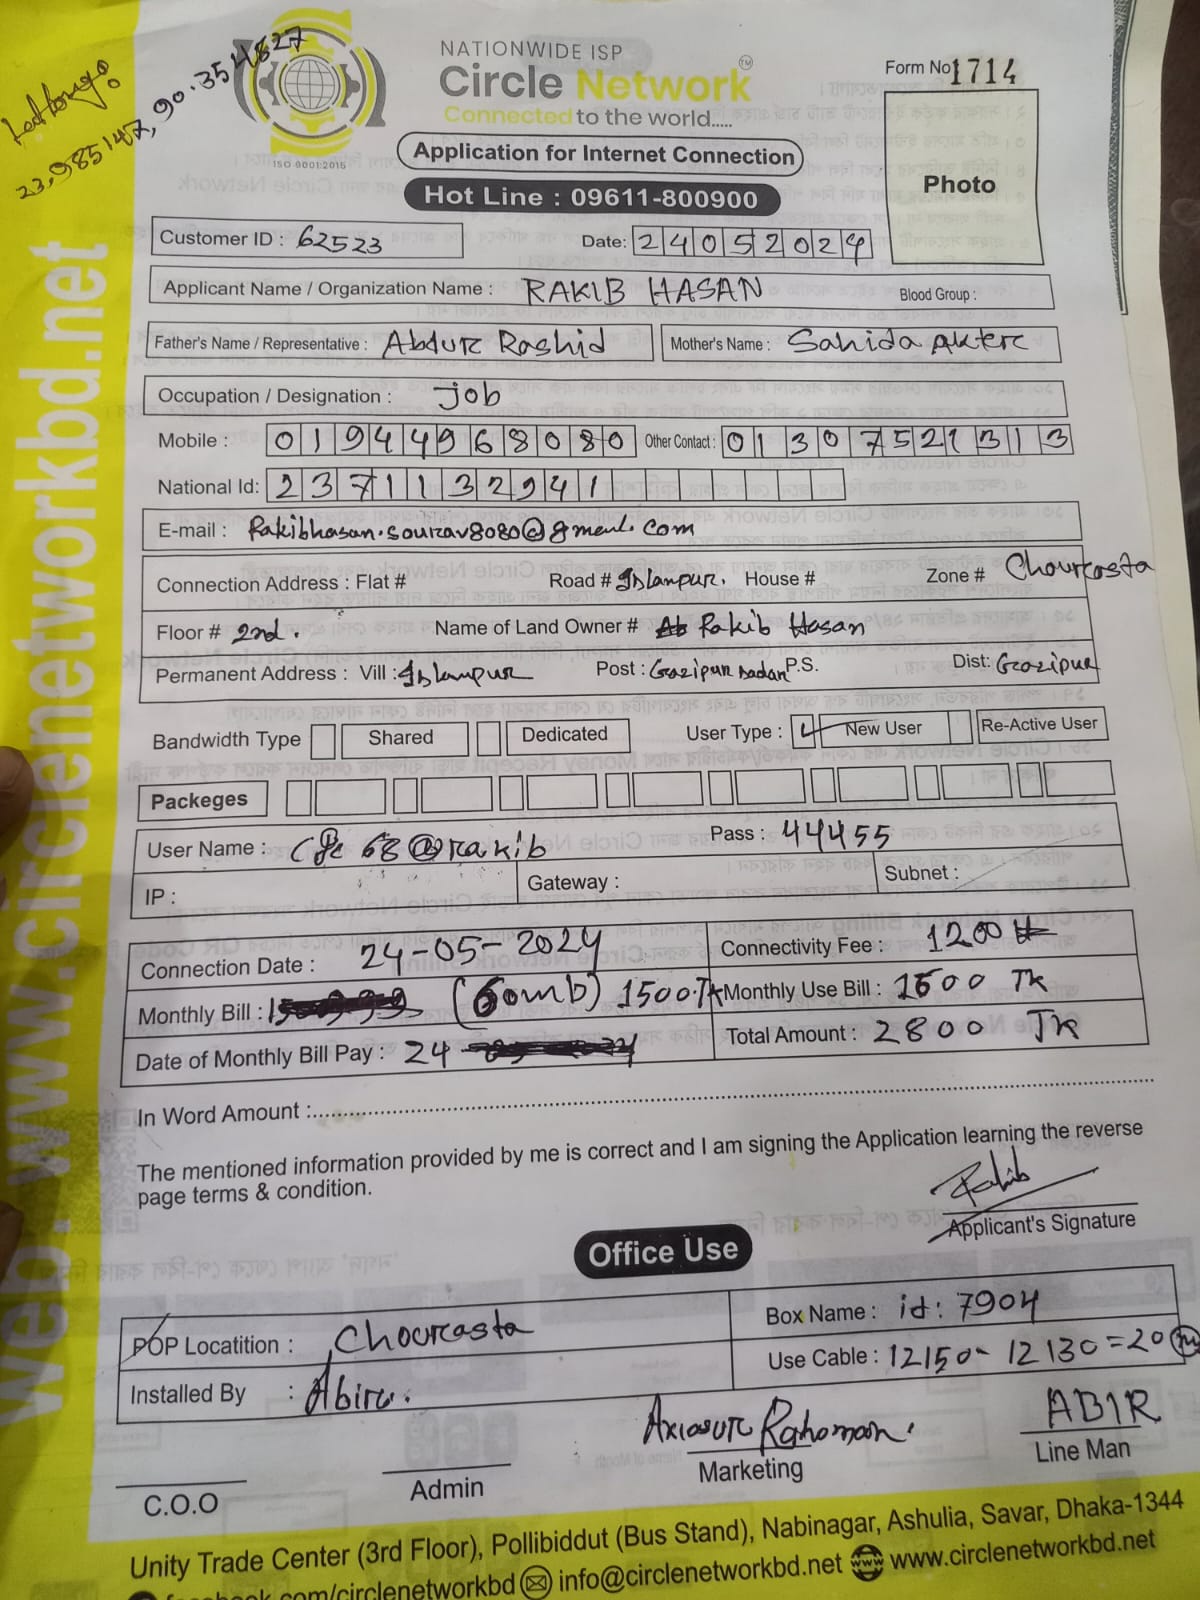 Lat Long:
23.985147, 90.354827
NATIONWIDE ISP
Circle Network TM
Connected to the world.....
ISO 9001:2015
Form No 1714
Application for Internet Connection
Hot Line : 09611-800900
Photo
Customer ID : 62523 Date: 24052024
Applicant Name / Organization Name : RAKIB HASAN Blood Group :
Father's Name / Representative : Abdur Rashid Mother's Name : Sahida Akter
Occupation / Designation : job
Mobile : 01944968080 Other Contact : 01307521313
National Id: 2371132941
E-mail : Rakibhasan.sourav8080@gmail.com
Connection Address : Flat # Road # Islampur. House # Zone # Chourasta
Floor # 2nd. Name of Land Owner # Rakib Hasan
Permanent Address : Vill : Islampur Post : Gazipur sadar P.S. Dist: Gazipur
Bandwidth Type Shared Dedicated User Type : New User Re-Active User
Packeges
User Name : 68@rakib Pass : 44455
IP : Gateway : Subnet :
Connection Date : 24-05-2024 Connectivity Fee : 1200
Monthly Bill : (60mb) 1500.Tk Monthly Use Bill : 1600 Tk
Date of Monthly Bill Pay : 24 Total Amount : 2800 Tk
In Word Amount :
The mentioned information provided by me is correct and I am signing the Application learning the reverse
page terms & condition.
Rakib
Applicant's Signature
Office Use
POP Locatition : Chourasta Box Name : id: 7904
Installed By : Abir. Use Cable : 12150-12130=20 m
Rahoman. ABIR
C.O.O Admin Marketing Line Man
Unity Trade Center (3rd Floor), Pollibiddut (Bus Stand), Nabinagar, Ashulia, Savar, Dhaka-1344
facebook.com/circlenetworkbd info@circlenetworkbd.net www.circlenetworkbd.net
web: www.circlenetworkbd.net